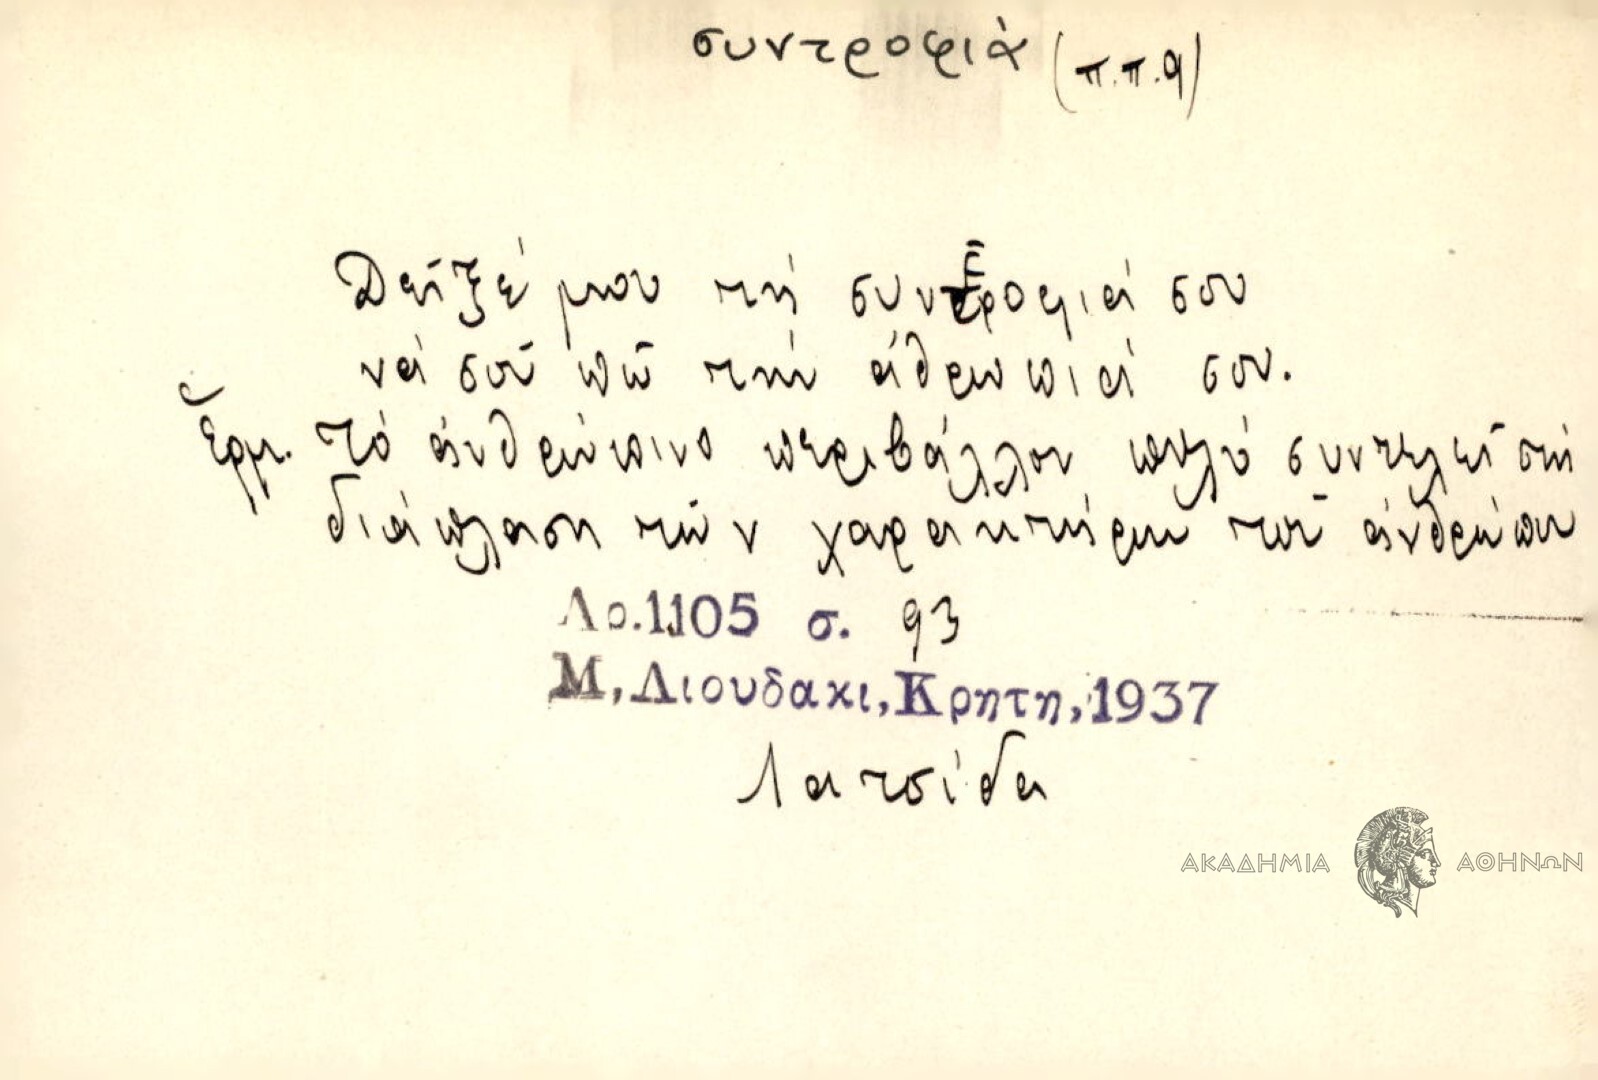 συντροφιὰ (π.π. 9)
Δεῖξέ μου τή συντροφιά σου
νά σοῦ πῶ τήν ἀθρωπιά σου.
Ἑρμ. Τό ἀνθρώπινο περιβάλλον πολύ συντελεῖ στή
διάπλαση τῶν χαρακτήρων τοῦ ἀνθρώπου
Λο.1105 σ. 93
Μ, Λιουδακι, Κρητη, 1937
Λατσίδα
ΑΚΑΔΗΜΙΑ ΑΘΗΝΩΝ